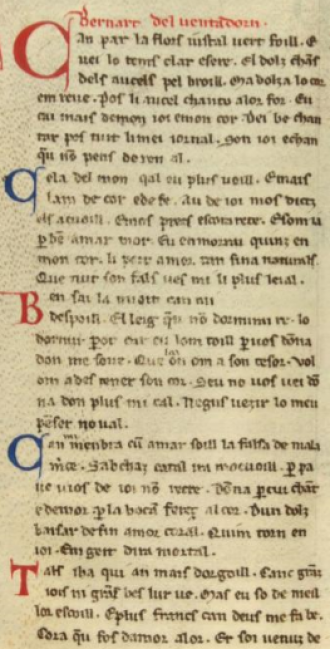 Bernart del uentadorn.
Can par la flors iustal uert foill. E
uei lo tems clar esere. El dolz chãs
dels aucels pel broill. Ma dolza lo cor
em reue. Pos li aucel chantō alor for. Eu
cui mais demon ioi emon cor. Dei be chan
tar pos tuit li mei iornal. Son ioi echan
qũ nõ pens de ren al.
Cela del mon qal eu plus uoill. Emais
lam de cor ede fe. Au de ioi mos dictz
els acuoill. Emos precs escota rete. E som ia
ꝑ bẽ amar mor. Eu en morrai quinz en
mon cor. li port amor tan fina naturals.
Que tuit son fals ues mi li plus leial.
Ben sai la nuoit can mi
despoill. El leig qũ nõ dormirai re. lo
dormir ꝑor car eu lom toill ꝑ uos dõna
don me soue. Que lai on om a son tesor. Vol
om ades tener son cor. Seu no uos uei dõ
na don plus mi cal. Negus uezir lo meu
pẽser no ual.
Can mi mẽbra cũ amar soill la falsa de mala
mce. Sabchaz catal ira mocuoill. ꝑ pa
uc uios de ioi nõ recre. Dõna ꝑ cui chãt
edemor. ꝑ la boca ferez al cor. Dun dolz
baisar de fin amor coral. Quim torn en
ioi. Em gert dira mortal.
Tals iha qui an mais dorgoill. Canc grãz
iois ni grãs bes lur ue. Mas eu so de meil
lor escoill. E plus francs can deus me fa be.
Cora qũ fos damor alor. Er soi uenuz de